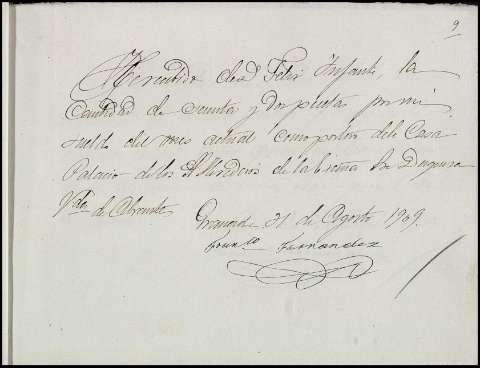 9
He recibido de d Felix Infante, la
Cantidad de sesenta y dos pesetas por mi
sueldo del mes actual como portero de la Casa
Palacio de los de la Excma Sra Duquesa
Vda de Abrantes
Granada 31 de Agosto 1909.
Fernandez